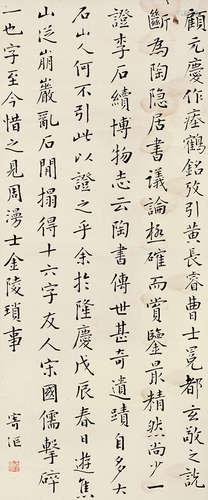 顧元慶作瘞鶴銘攷引黃長睿曹士冕都玄敬之說
斷為陶隱居書議論極確而賞鑒最精然尚少一
證李石續博物志云陶書傳世甚奇遺蹟自多大
石山人何不引此以證之乎余於隆慶戊辰春日遊焦
山泛崩巖亂石間搨得十六字友人宋國儒擊碎
一也字至今惜之見周湧士金陵瑣事
寄漚